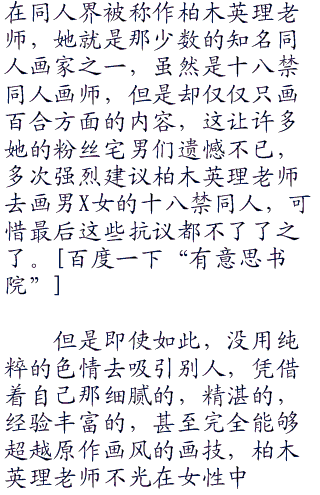 在同人界被称作柏木英理老
师，她就是那少数的知名同
人画家之一，虽然是十八禁
同人画师，但是却仅仅只画
百合方面的内容，这让许多
她的粉丝宅男们遗憾不已，
多次强烈建议柏木英理老师
去画男X女的十八禁同人，可
惜最后这些抗议都不了了之
了。[百度一下“有意思书
院”]
但是即使如此，没用纯
粹的色情去吸引别人，凭借
着自己那细腻的，精湛的，
经验丰富的，甚至完全能够
超越原作画风的画技，柏木
英理老师不光在女性中